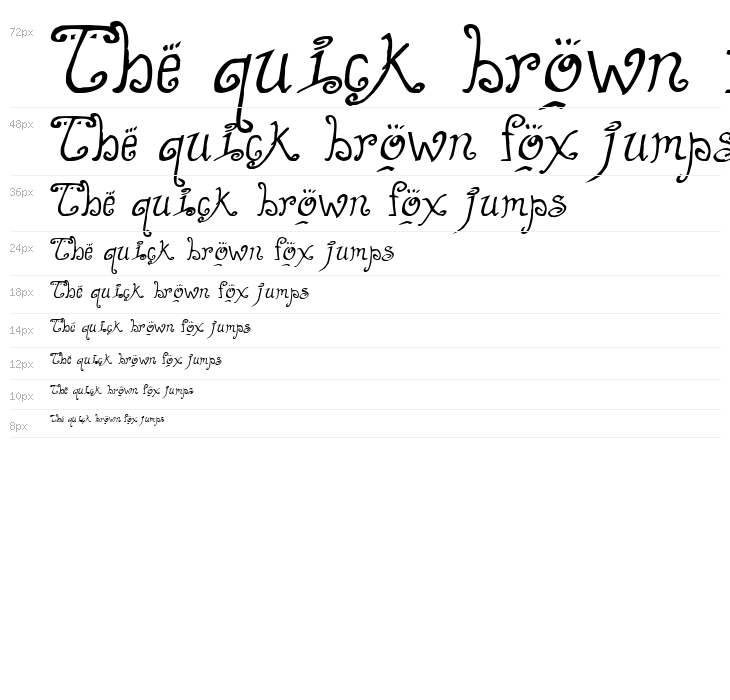 72px Thë quick bröwn
48px Thë quick bröwn föx jumps
36px Thë quick bröwn föx jumps
24px Thë quick bröwn föx jumps
18px Thë quick bröwn föx jumps
14px Thë quick bröwn föx jumps
12px Thë quick bröwn föx jumps
10px Thë quick bröwn föx jumps
8px Thë quick bröwn föx jumps